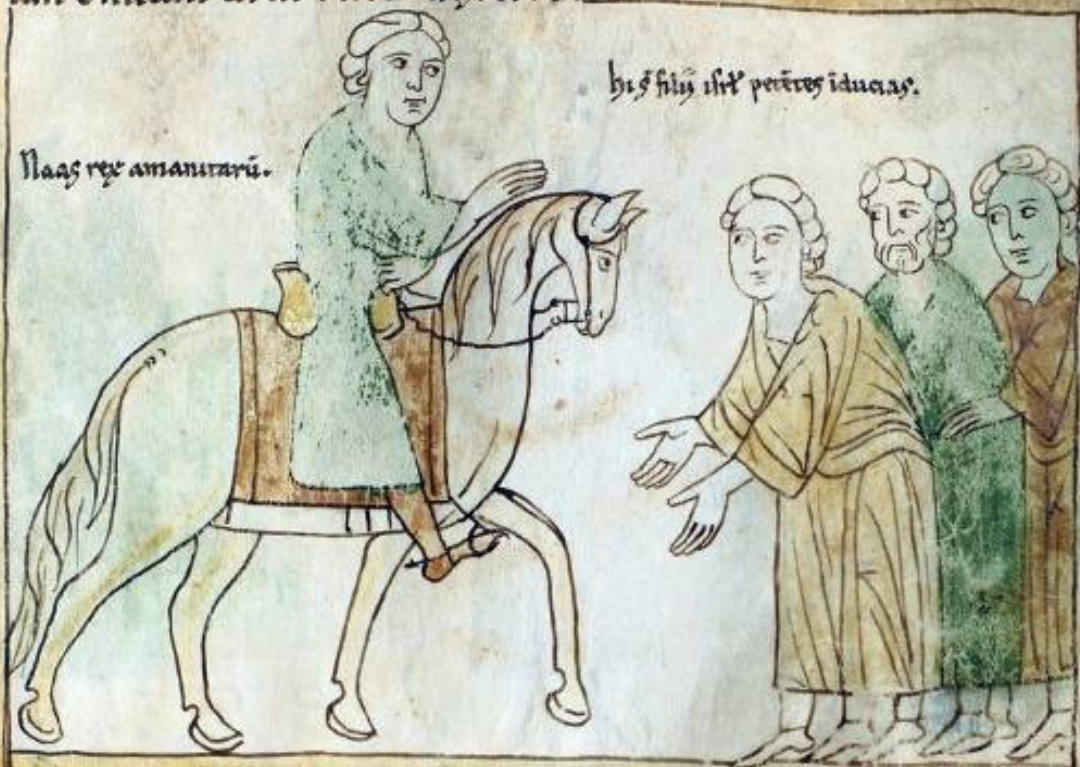 Naas rex amanitarū.
hi s̄ filii isrł petētes īducias.